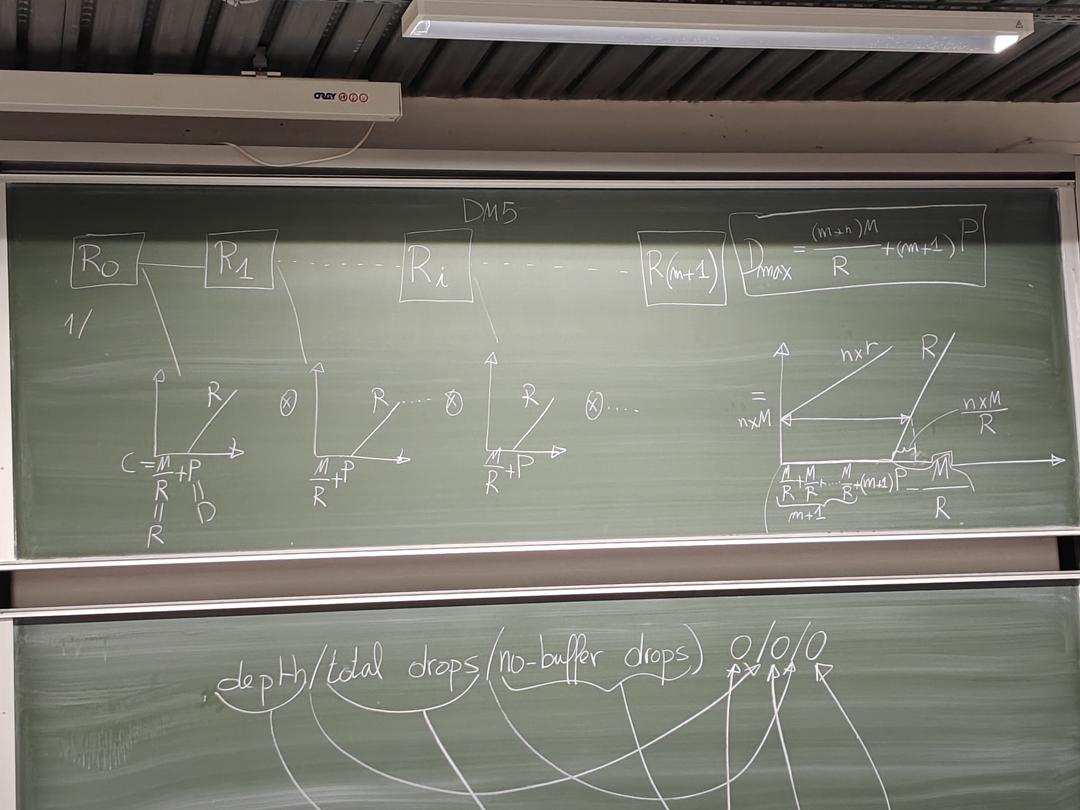 ORAY
DM5
R0 R1 Ri R(m+1) Dmax = (m+n)M/R + (m+1)P
1/
R ⊗ R .... ⊗ R ⊗ .... = n×r R
n×M n×M/R
C = M/R + P M/R + P M/R + P M/R + M/R + .... M/R + (m+1)P - M/R
|| || m+1
R D
depth/total drops/(no-buffer drops) 0/0/0